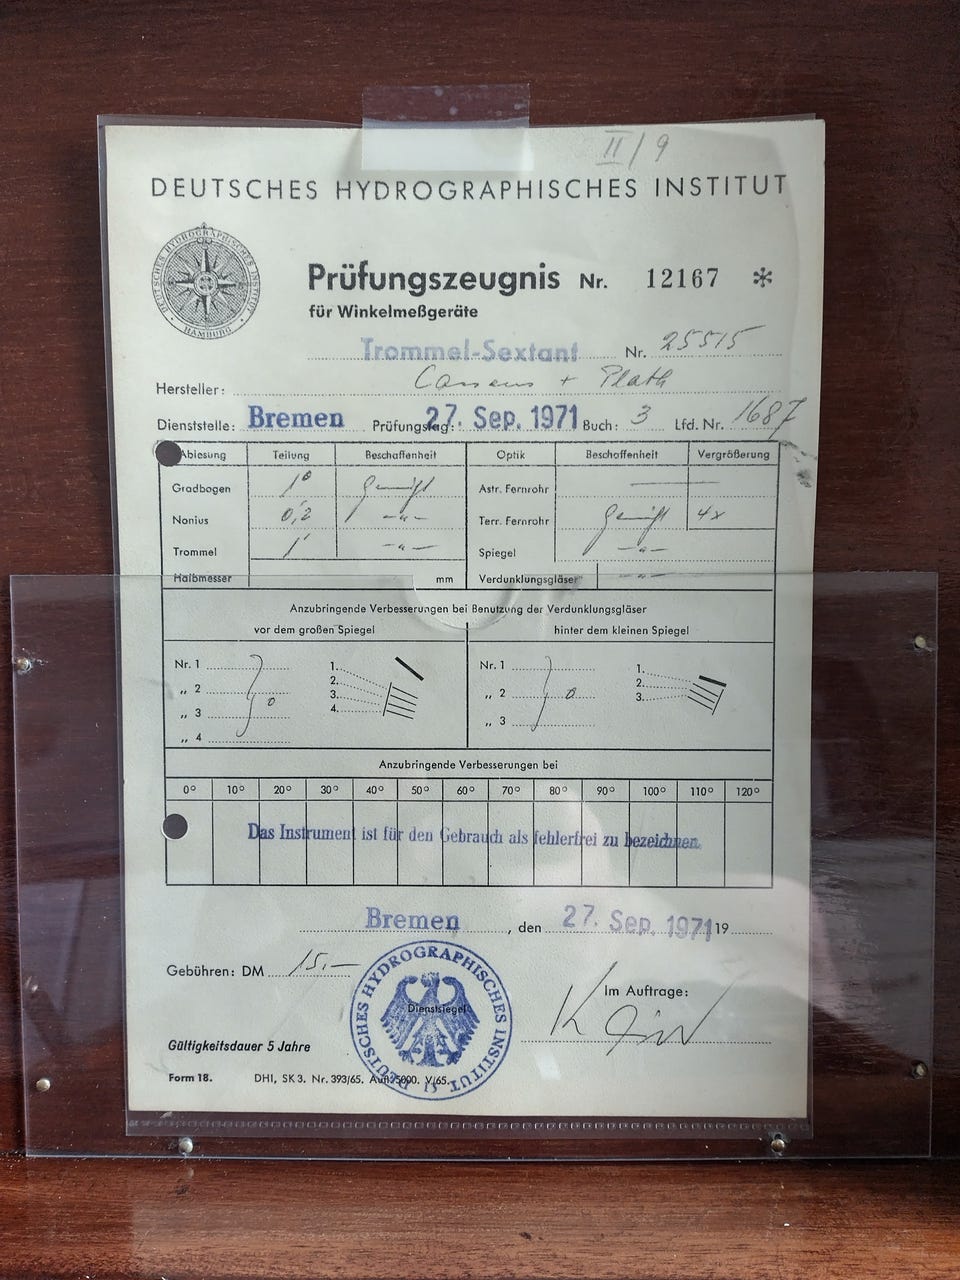 II/9
DEUTSCHES HYDROGRAPHISCHES INSTITUT
DEUTSCHES HYDROGRAPHISCHES INSTITUT
• HAMBURG •
Prüfungszeugnis Nr. 12167 *
für Winkelmeßgeräte
Trommel-Sextant Nr. 25515
Hersteller: Cassens + Plath
Dienststelle: Bremen Prüfungstag: 27. Sep. 1971 Buch: 3 Lfd. Nr. 1687
Ablesung Teilung Beschaffenheit Optik Beschaffenheit Vergrößerung
Gradbogen 1° genügt Astr. Fernrohr —
Nonius 0,2 -"- Terr. Fernrohr genügt 4x
Trommel 1' -"- Spiegel -"-
Halbmesser mm Verdunklungsgläser -"-
Anzubringende Verbesserungen bei Benutzung der Verdunklungsgläser
vor dem großen Spiegel hinter dem kleinen Spiegel
Nr. 1 1. Nr. 1 1.
„ 2 2. „ 2 2.
„ 3 0 3. „ 3 0 3.
„ 4 4.
Anzubringende Verbesserungen bei
0° 10° 20° 30° 40° 50° 60° 70° 80° 90° 100° 110° 120°
Das Instrument ist für den Gebrauch als fehlerfrei zu bezeichnen.
Bremen, den 27. Sep. 1971 19
Gebühren: DM 15.—
Im Auftrage:
DEUTSCHES HYDROGRAPHISCHES INSTITUT
Dienstsiegel
51
Gültigkeitsdauer 5 Jahre
Form 18. DHI, SK 3. Nr. 393/65. Aufl. 5000. V/65.